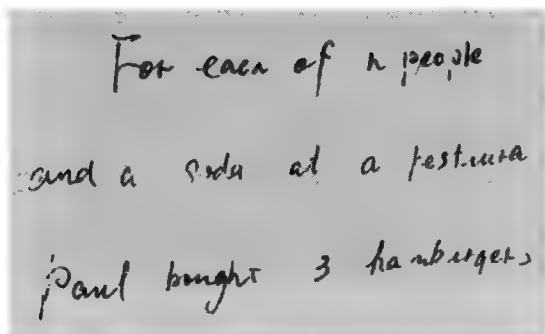 For each of n people
and a soda at a
Paul bought 3 hamburgers